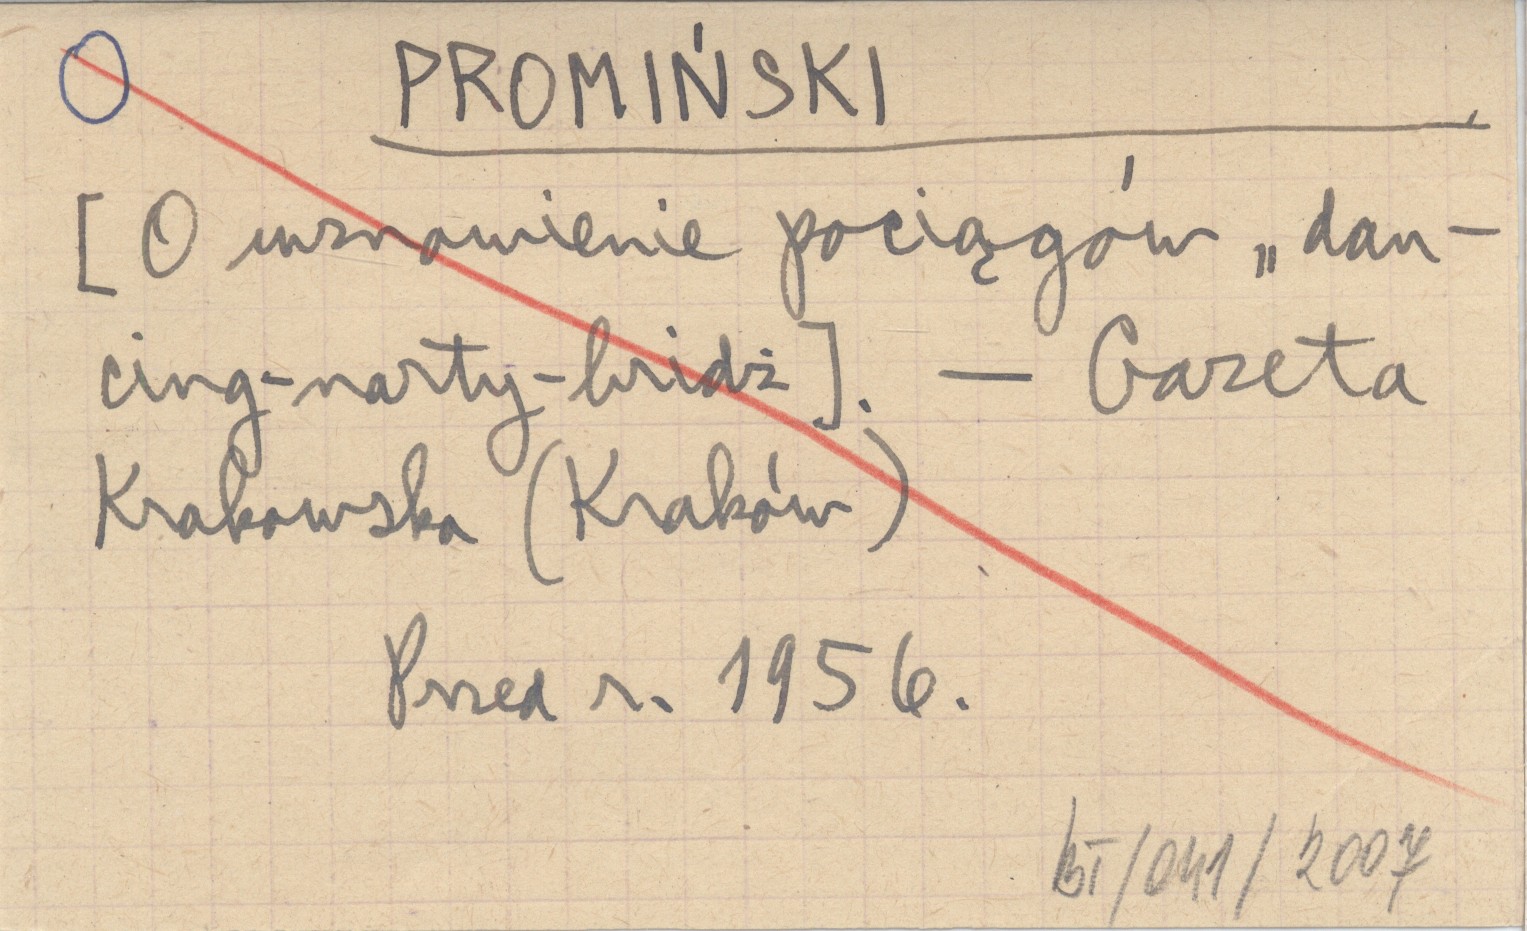 O PROMIŃSKI
[O wznowienie pociągów „dan-
cing-narty-bridż]. — Gazeta
Krakowska (Kraków)
Przed r. 1956.
BT/041/2007